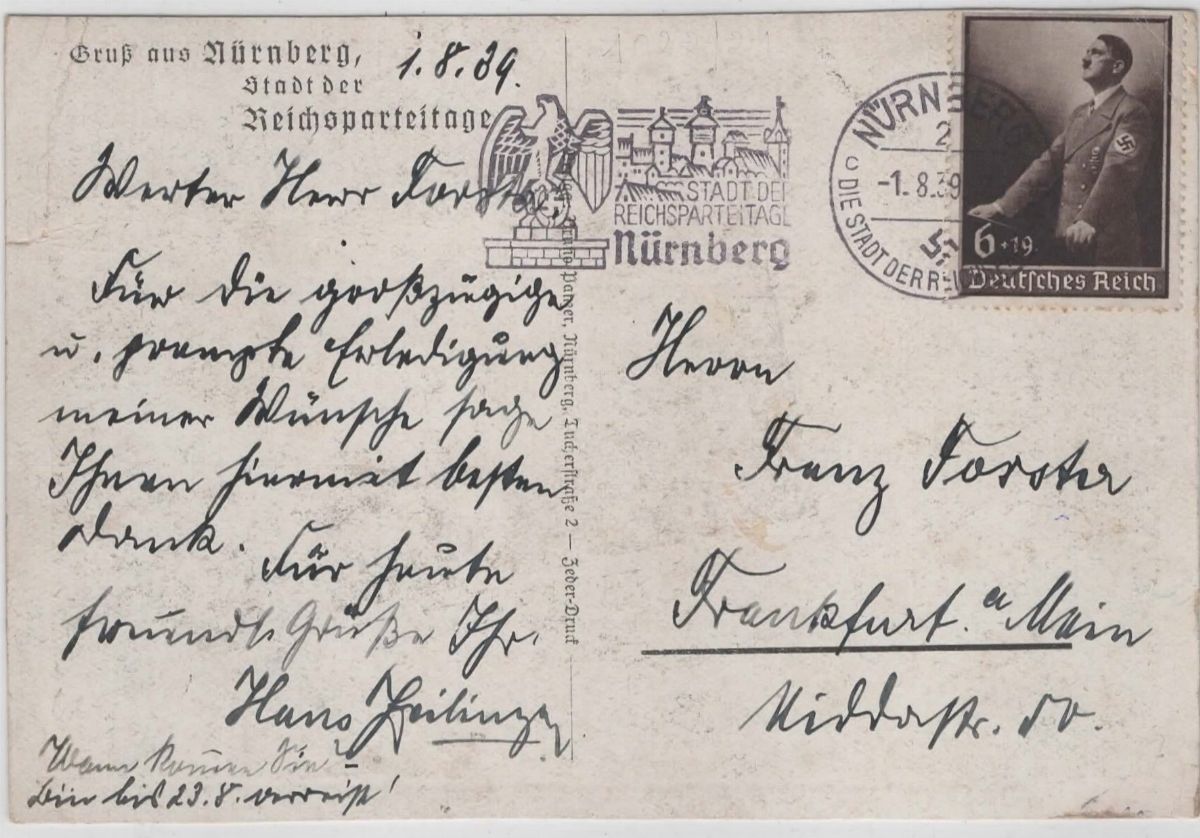 Gruß aus Nürnberg,
Stadt der
Reichsparteitage
1.8.39.
Werter Herr Forster,
Für die großzügige
u. prompte Erledigung
meiner Wünsche sage
Ihnen hiermit besten
Dank. Für heute
freundl. Grüße Ihr.
Hans
Wann kommen Sie?
Bin bis 23.8. verreist!
Nürnberg, Tucherstraße 2 — Zeder-Druck
STADT DER
REICHSPARTEITAGE
Nürnberg
NÜRNBERG
2
-1.8.39
C
DIE STADT DER REI
6+19
Deutsches Reich
Herrn
Franz Forster
Frankfurt a Main
Niddastr. 50.